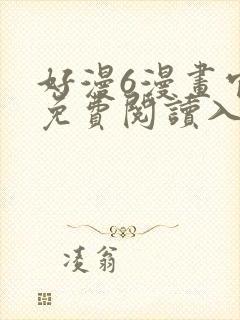 好漫6漫畫
免費閱讀入
凌翁